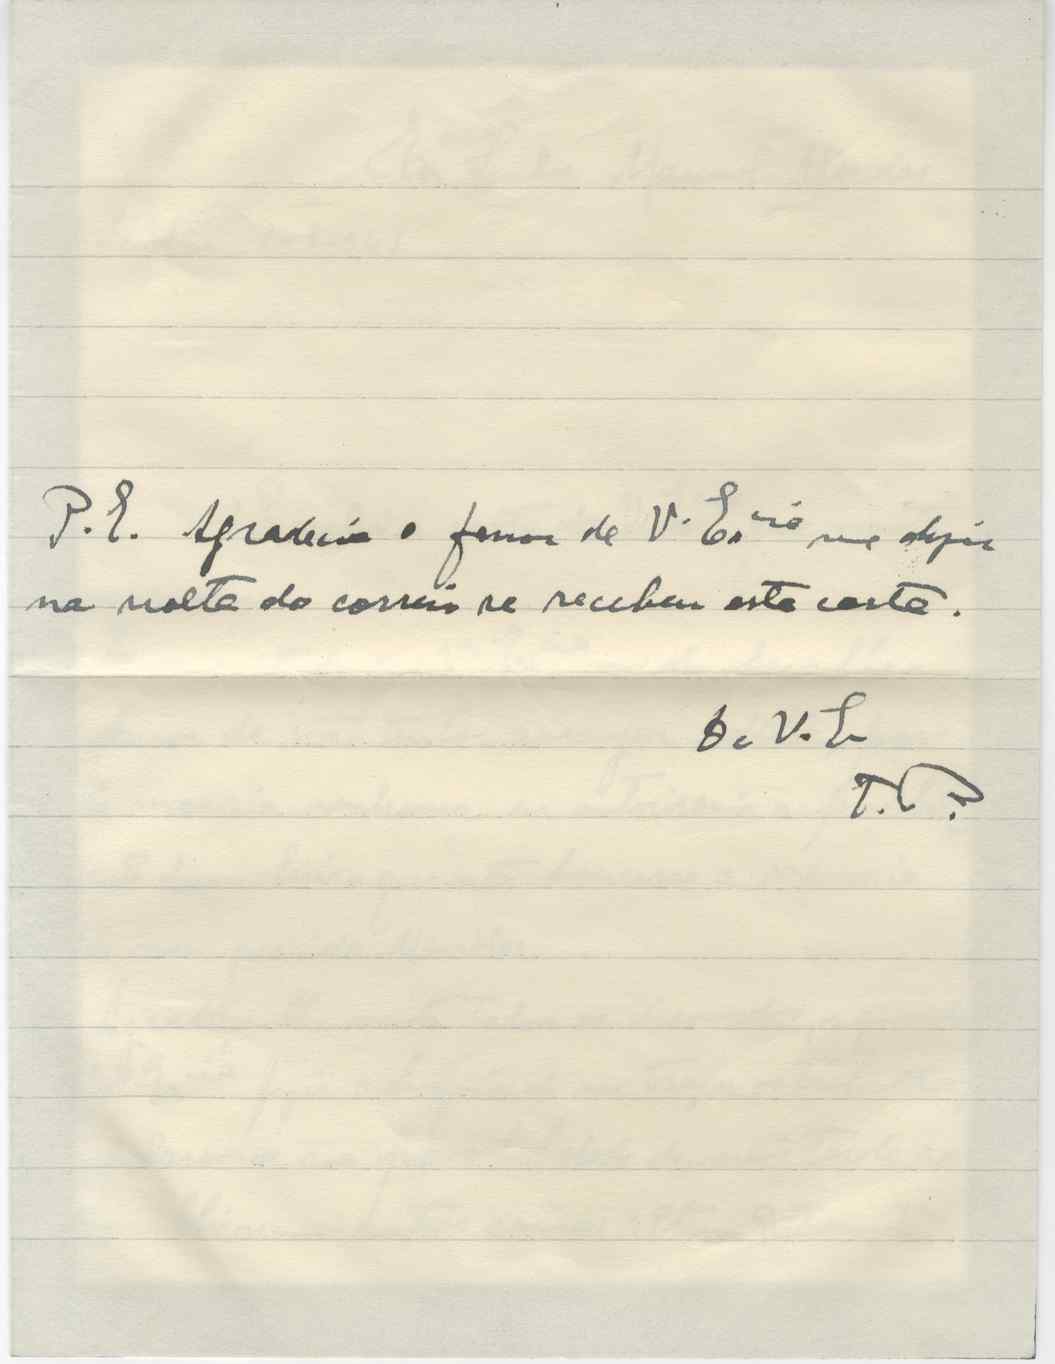 P.E. Agradecia o favor de V. Ex.cia me dizer
na volta do correio se recebeu esta carta.
De V. E.
T. P.